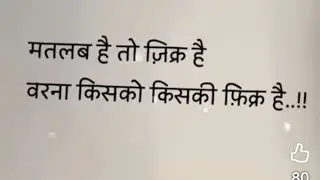 मतलब है तो ज़िक्र है
वरना किसको किसकी फ़िक्र है..!!
80